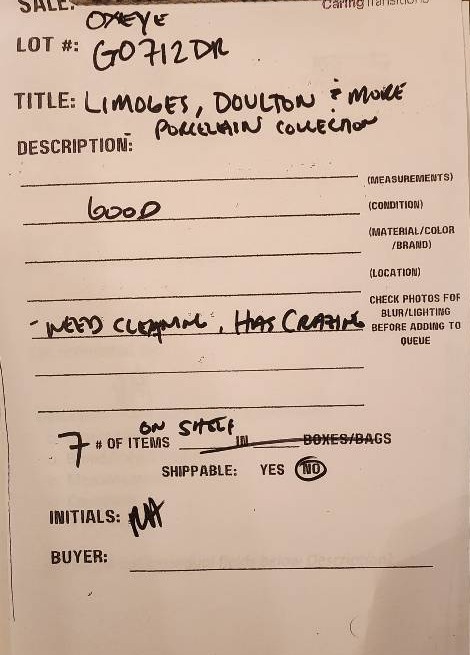 SALE: OXEYE Caring Transitions
LOT #: GO712DR
TITLE: LIMOGES, DOULTON & MORE
PORCELAIN COLLECTION
DESCRIPTION:
(MEASUREMENTS)
GOOD (CONDITION)
(MATERIAL/COLOR
/BRAND)
(LOCATION)
CHECK PHOTOS FOR
BLUR/LIGHTING
- NEED CLEANING, HAS CRAZING BEFORE ADDING TO
QUEUE
ON SHELF
7 # OF ITEMS IN BOXES/BAGS
SHIPPABLE: YES NO
INITIALS: NA
BUYER: